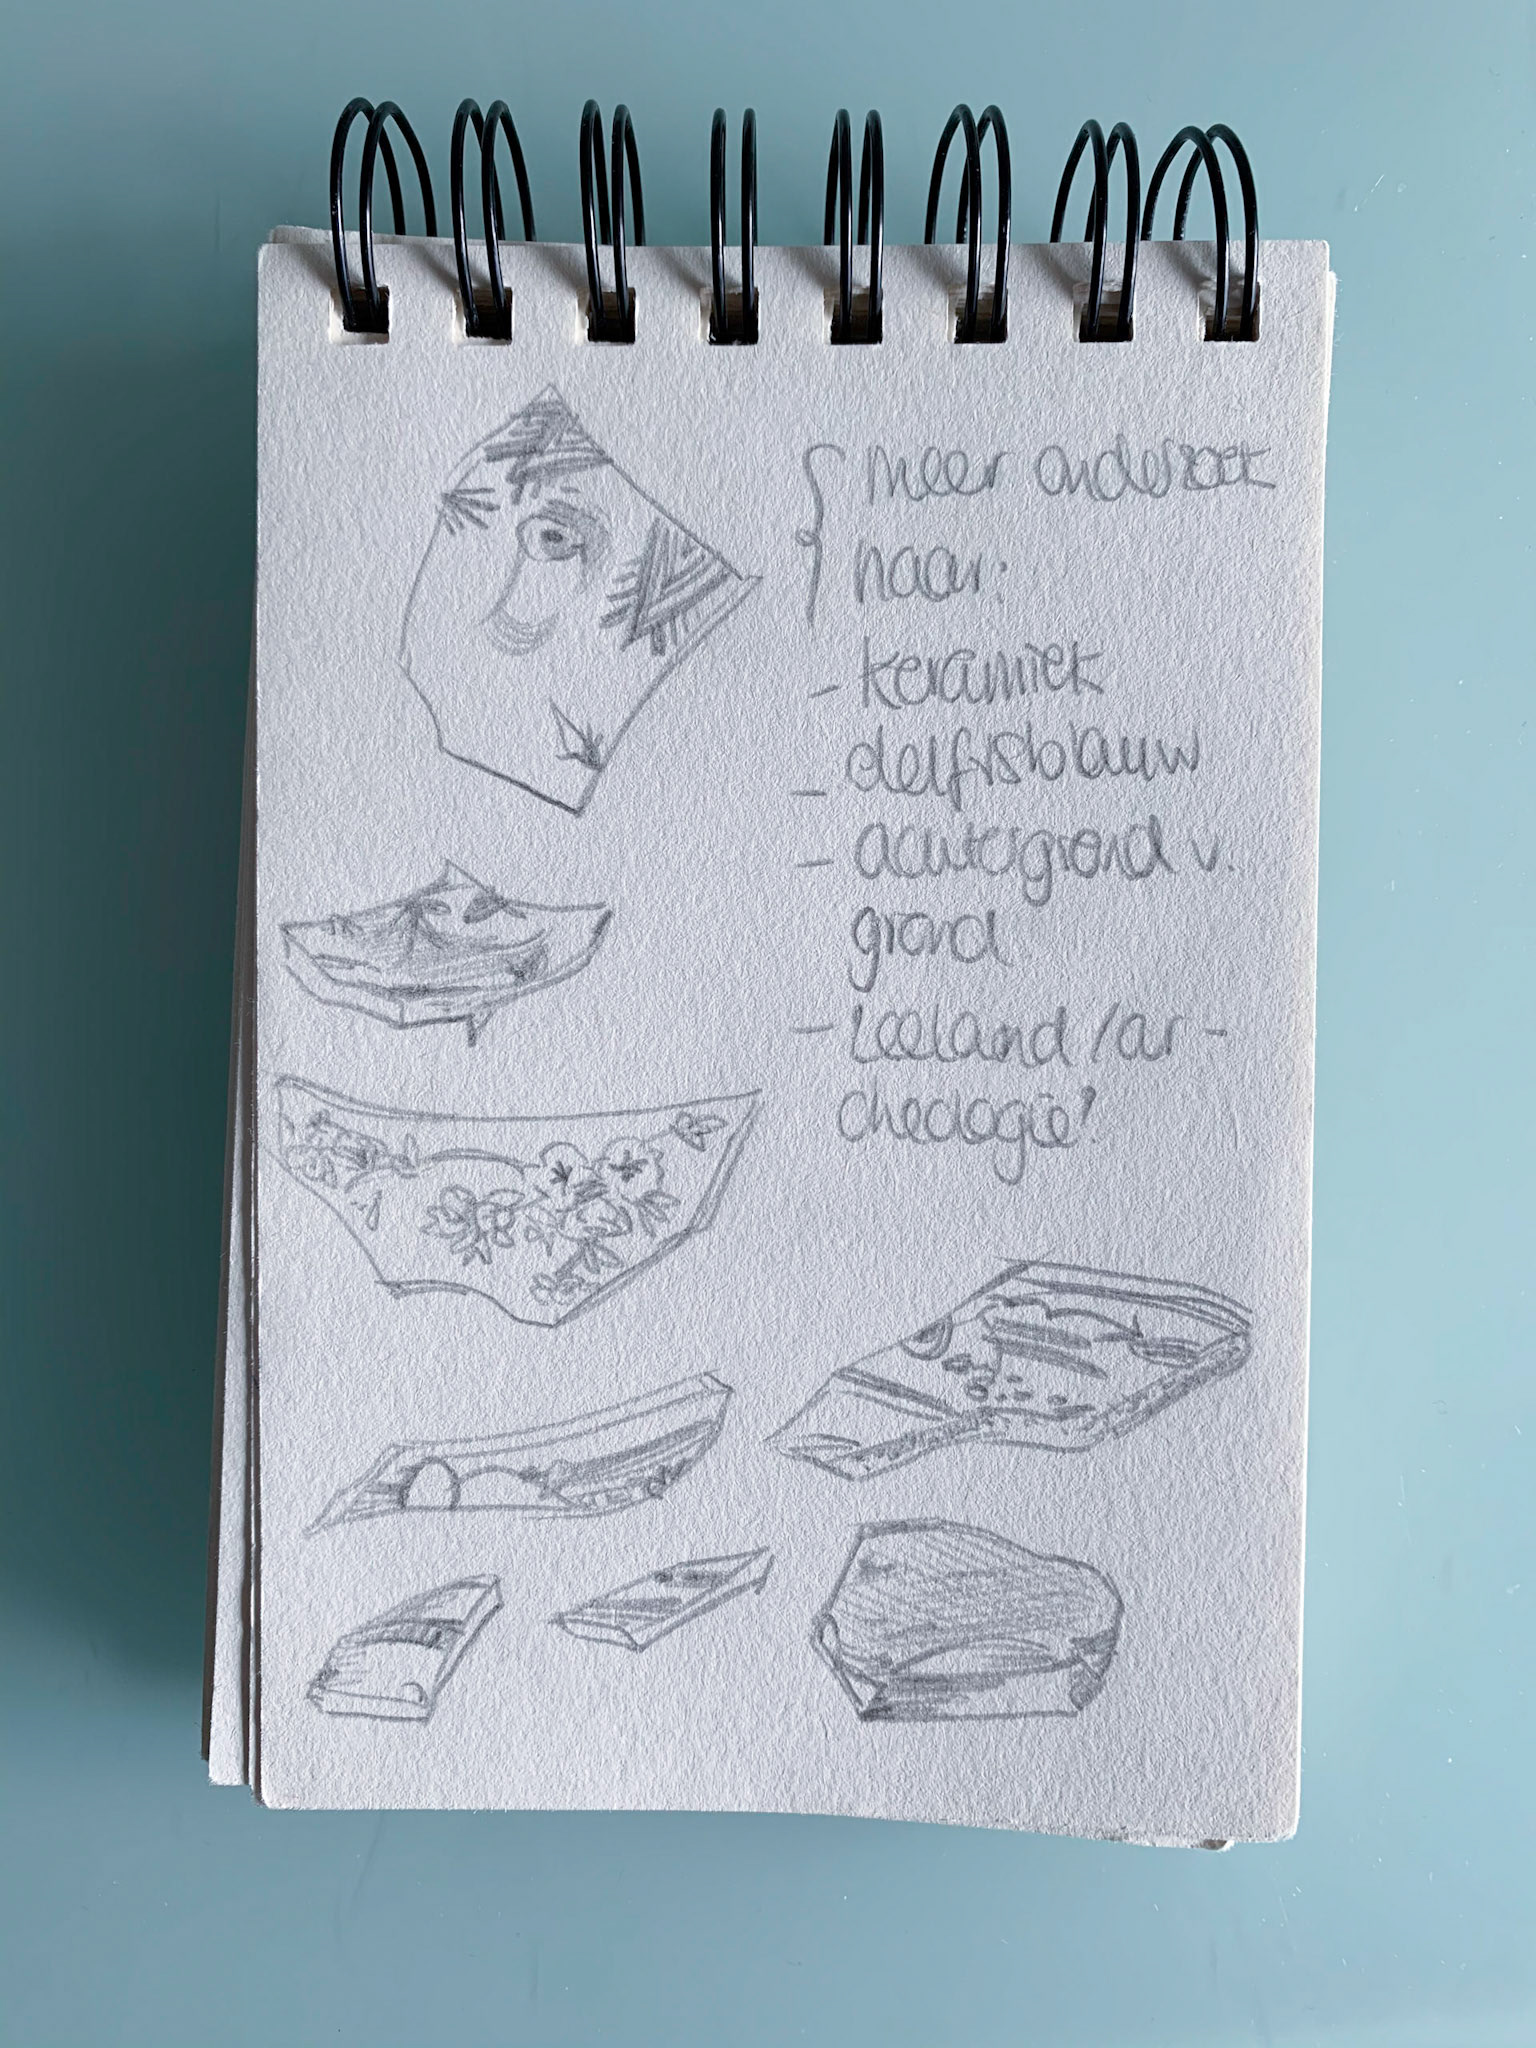 { meer onderzoek
naar:
- keramiek
- delftsblauw
- achtergrond v.
grond
- Zeeland / ar-
cheologie?